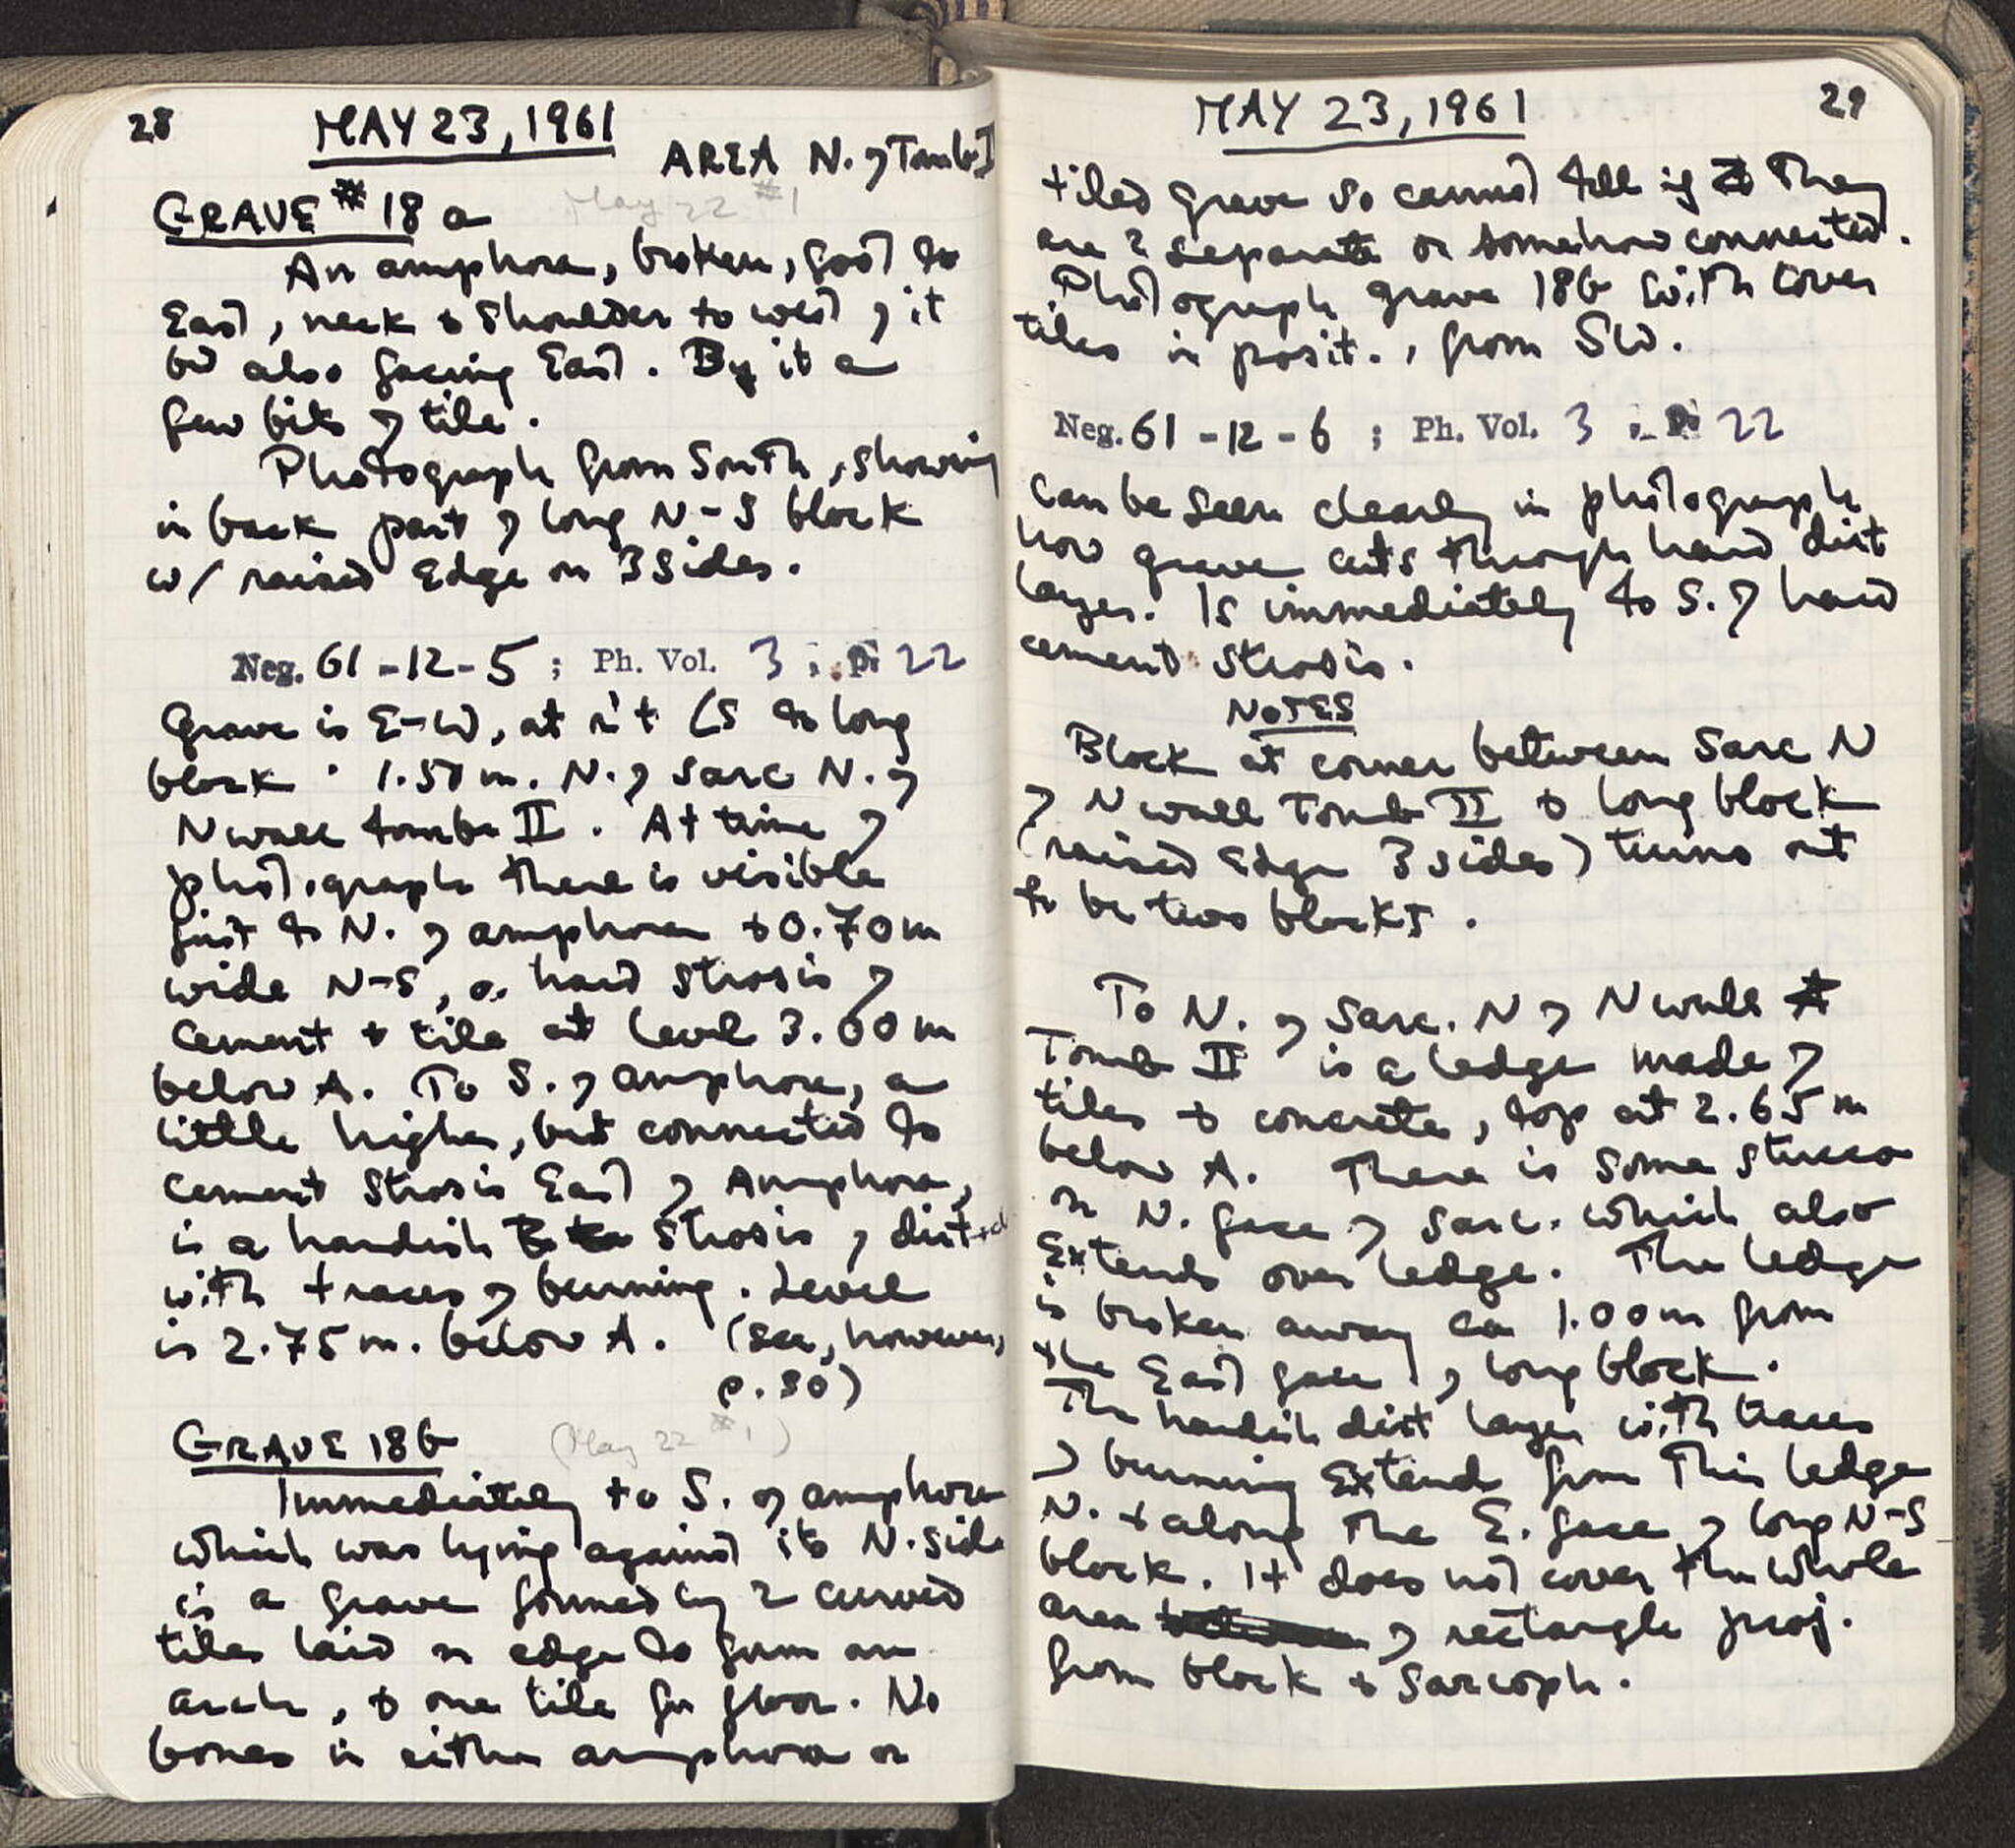 28
MAY 23, 1961
AREA N. of Tomb I
GRAVE #18a
May 22 #1
An amphora, broken, foot to
East, neck & shoulder to west of it
but also facing East. By it a
few bits of tile.
Photograph from South, showing
in back part of long N-S block
w/ raised edge on 3 sides.
Neg. 61-12-5; Ph. Vol. 3; p. 22
Grave is E-W, at r't ∠s to long
block. 1.50 m. N. of Sarc N. of
N wall tomb II. At time of
photograph there is visible
just to N. of amphora & 0.70 m
wide N-S, a hard strosis of
cement & tile at level 3.00 m
below A. To S. of amphora, a
little higher, but connected to
cement strosis East of Amphora,
is a hardish strosis of dirt
with traces of burning. Level
is 2.75 m. below A. (See, however,
p. 30)
GRAVE 18b
(May 22 #1)
Immediately to S. of amphora
which was lying against its N. side
is a grave formed by 2 curved
tiles laid on edge to form an
arch, & one tile for floor. No
bones in either amphora or
MAY 23, 1961
29
tiled grave so cannot tell if they
are 2 separate or somehow connected.
Photograph grave 18b with cover
tiles in posit., from SW.
Neg. 61-12-6; Ph. Vol. 3; p. 22
Can be seen clearly in photograph
how grave cuts through hard dirt
layer. Is immediately to S. of hard
cement strosis.
NOTES
Block at corner between Sarc N
of N wall Tomb II & long block
(raised edge 3 sides) turns out
to be two blocks.
To N. of Sarc. N of N wall
Tomb II is a ledge made of
tiles & concrete, top at 2.65 m
below A. There is some stucco
on N. face of Sarc. which also
extends over ledge. The ledge
is broken away ca 1.00 m from
the East face of long block.
The hardish dirt layer with traces
of burning extends from this ledge
N. & along the E. face of long N-S
block. It does not cover the whole
area of rectangle proj.
from block & Sarcoph.